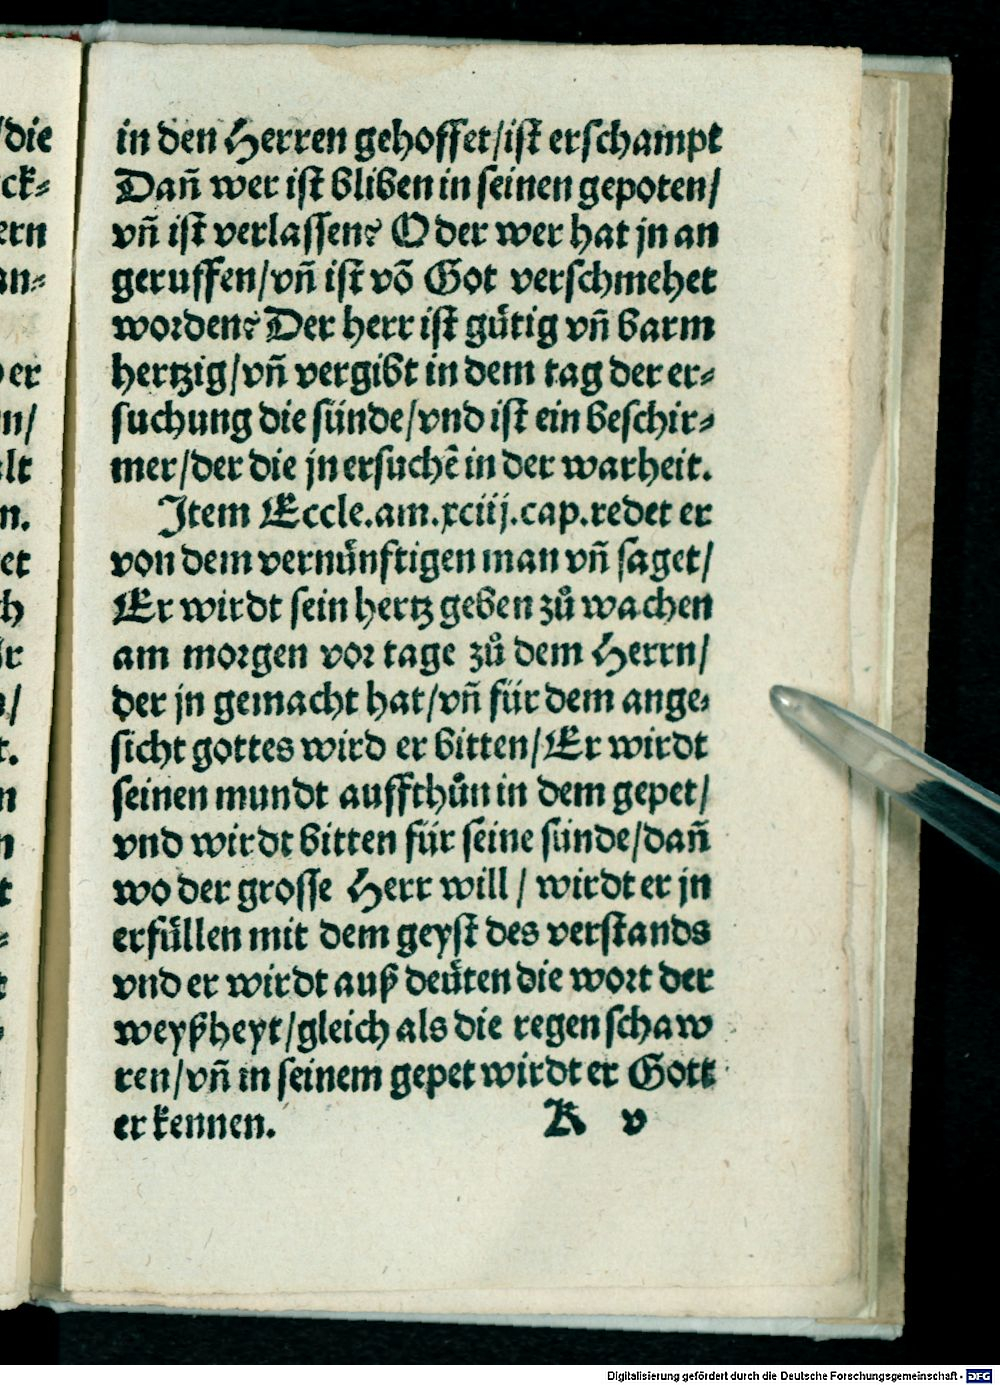 in den Herren gehoffet/ist erschampt
Dañ wer ist bliben in seinen gepoten/
vñ ist verlassen? Oder wer hat jn an
geruffen/vñ ist võ Got verschmehet
worden? Der herr ist gütig vñ barm
hertzig/vñ vergibt in dem tag der er-
suchung die sünde/vnd ist ein beschir-
mer/der die jn ersuchẽ in der warheit.
Item Eccle.am.xciij.cap.redet er
von dem vernünftigen man vñ saget/
Er wirdt sein hertz geben zů wachen
am morgen vor tage zů dem Herrn/
der jn gemacht hat/vñ für dem ange-
sicht gottes wird er bitten/Er wirdt
seinen mundt auffthůn in dem gepet/
vnd wirdt bitten für seine sünde/dañ
wo der grosse Herr will/ wirdt er jn
erfüllen mit dem geyst des verstands
vnd er wirdt auß deüten die wort der
weyßheyt/gleich als die regen schaw
ren/vñ in seinem gepet wirdt er Gott
er kennen. K v
/die
ck-
ern
an-
er
n/
lt
n.
et
Digitalisierung gefördert durch die Deutsche Forschungsgemeinschaft - DFG